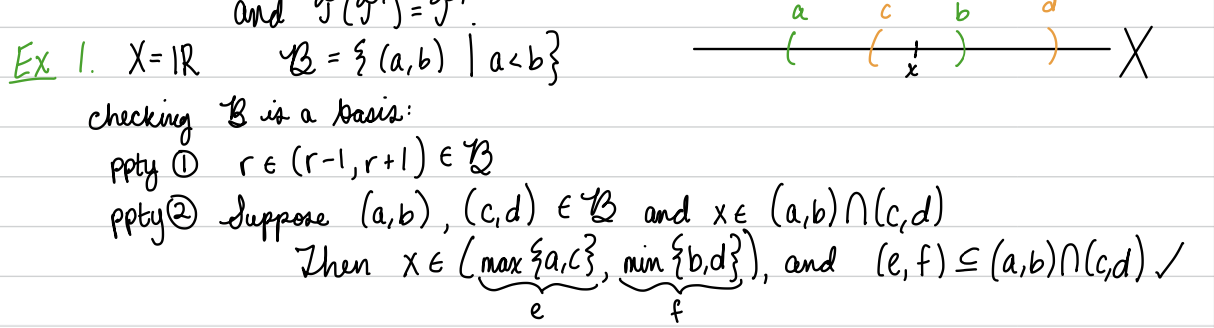 and 𝒯(𝒯') = 𝒯'.
a c b d
Ex 1. X = ℝ ℬ = { (a,b) | a < b} ( ( x ) ) X
checking ℬ is a basis:
ppty ① r ∈ (r-1, r+1) ∈ ℬ
ppty ② Suppose (a,b), (c,d) ∈ ℬ and x ∈ (a,b) ∩ (c,d)
Then x ∈ (max {a,c}, min {b,d}), and (e,f) ⊆ (a,b)∩(c,d) ✓
e f